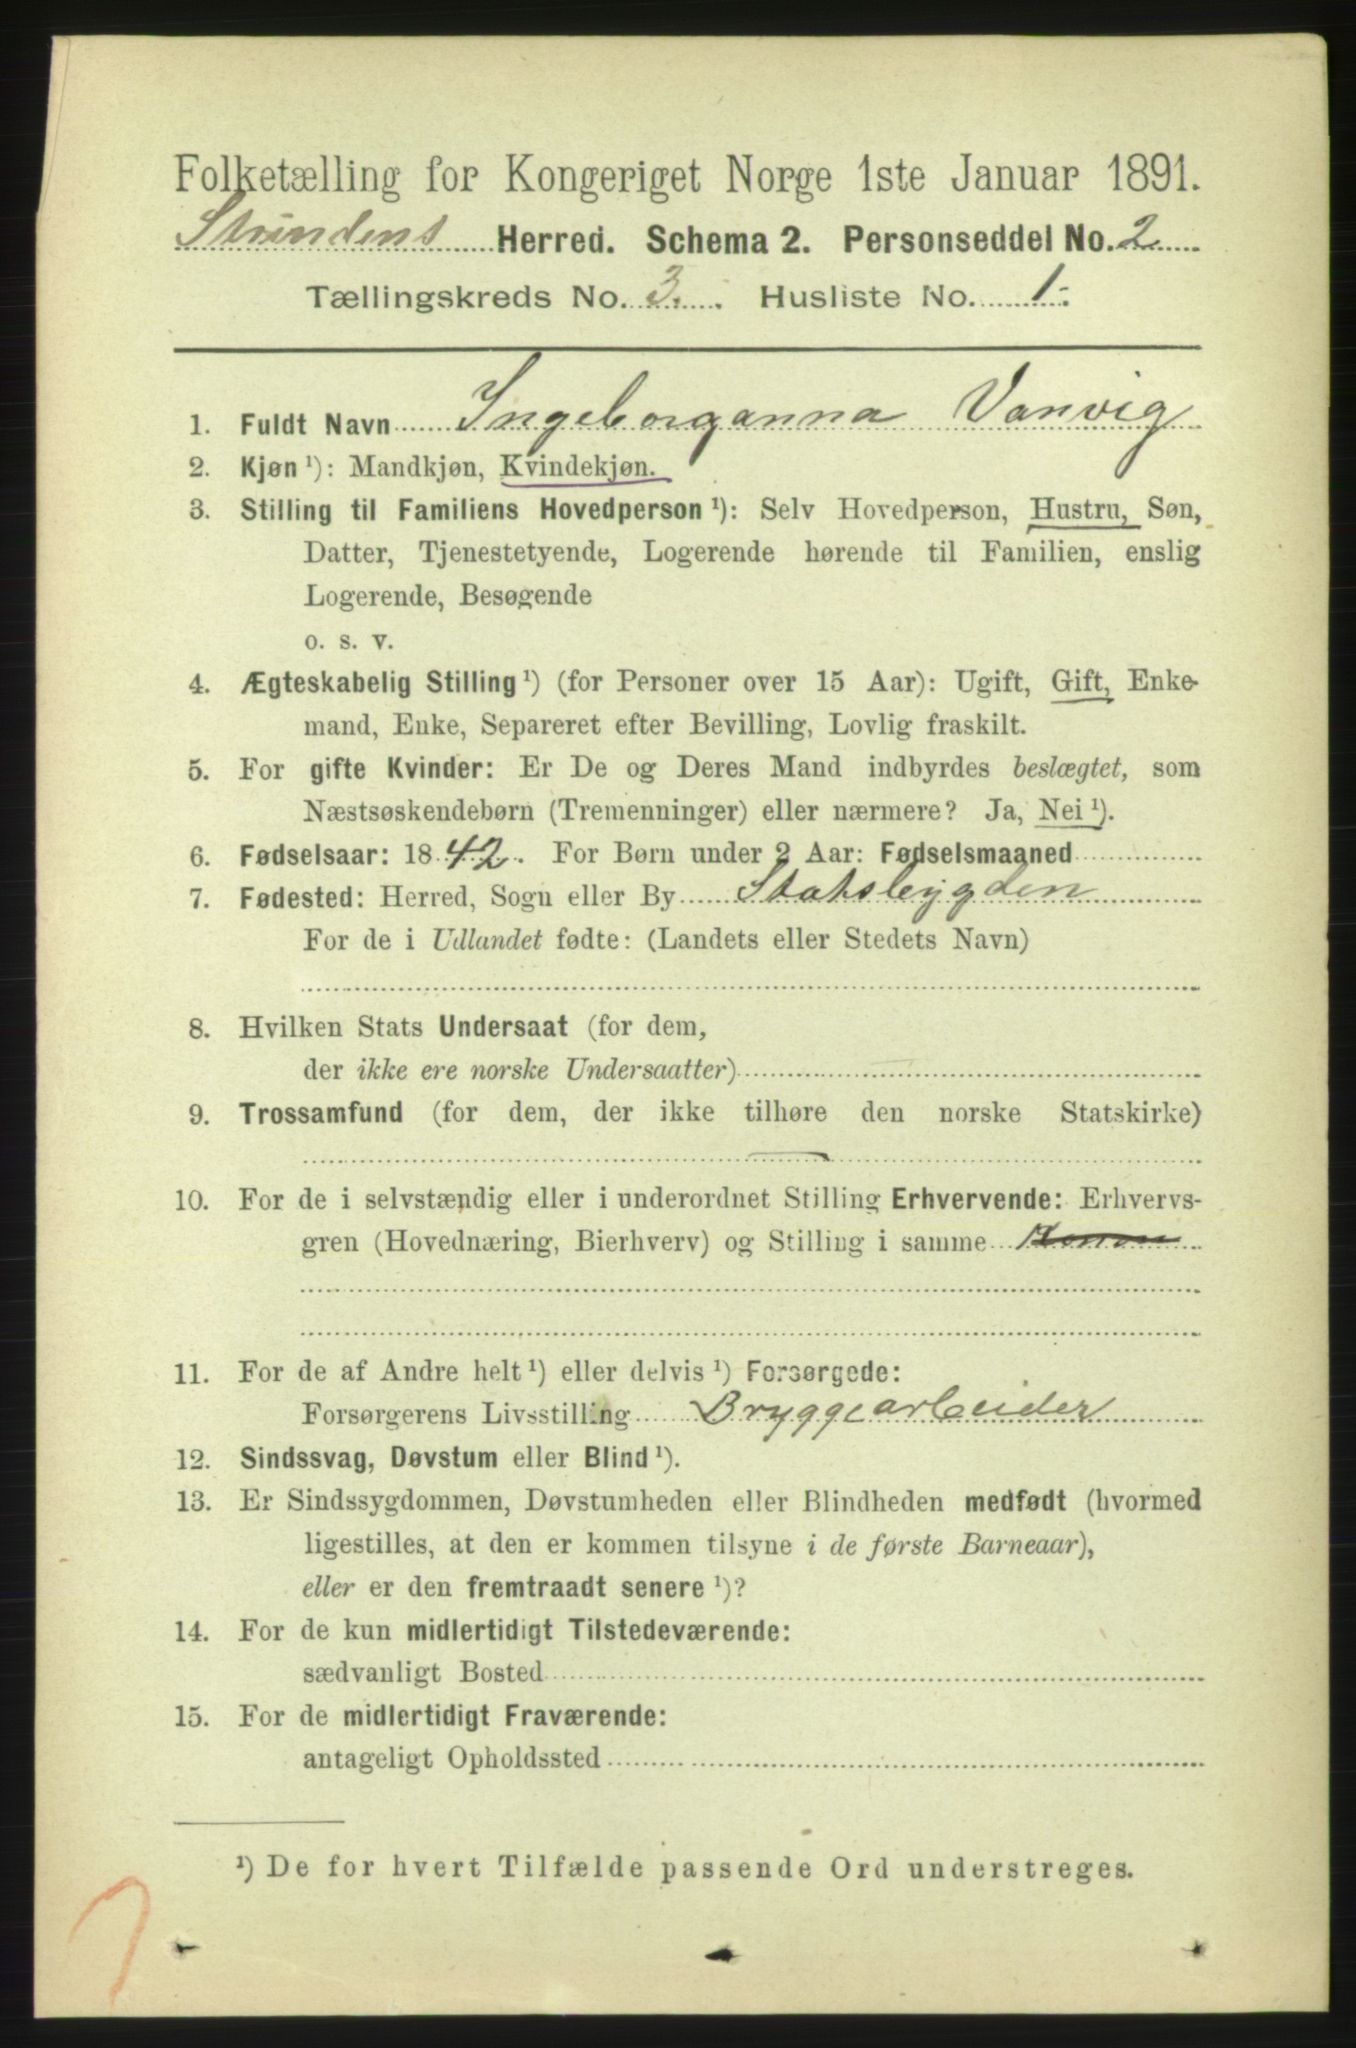 Folketælling for Kongeriget Norge 1ste Januar 1891.
Strindens Herred. Schema 2. Personseddel No. 2
Tællingskreds No. 3. Husliste No. 1.
1. Fuldt Navn Ingeborganna Vanvig
2. Kjøn ¹): Mandkjøn, Kvindekjøn.
3. Stilling til Familiens Hovedperson ¹): Selv Hovedperson, Hustru, Søn,
Datter, Tjenestetyende, Logerende hørende til Familien, enslig
Logerende, Besøgende
o. s. v.
4. Ægteskabelig Stilling ¹) (for Personer over 15 Aar): Ugift, Gift, Enke-
mand, Enke, Separeret efter Bevilling, Lovlig fraskilt.
5. For gifte Kvinder: Er De og Deres Mand indbyrdes beslægtet, som
Næstsøskendebørn (Tremenninger) eller nærmere? Ja, Nei ¹).
6. Fødselsaar: 1842. For Børn under 2 Aar: Fødselsmaaned
7. Fødested: Herred, Sogn eller By Statsbygden
For de i Udlandet fødte: (Landets eller Stedets Navn)
8. Hvilken Stats Undersaat (for dem,
der ikke ere norske Undersaatter)
9. Trossamfund (for dem, der ikke tilhøre den norske Statskirke)
10. For de i selvstændig eller i underordnet Stilling Erhvervende: Erhvervs-
gren (Hovednæring, Bierhverv) og Stilling i samme
11. For de af Andre helt ¹) eller delvis ¹) Forsørgede:
Forsørgerens Livsstilling Bryggearbeider
12. Sindssvag, Døvstum eller Blind ¹).
13. Er Sindssygdommen, Døvstumheden eller Blindheden medfødt (hvormed
ligestilles, at den er kommen tilsyne i de første Barneaar),
eller er den fremtraadt senere ¹)?
14. For de kun midlertidigt Tilstedeværende:
sædvanligt Bosted
15. For de midlertidigt Fraværende:
antageligt Opholdssted
¹) De for hvert Tilfælde passende Ord understreges.